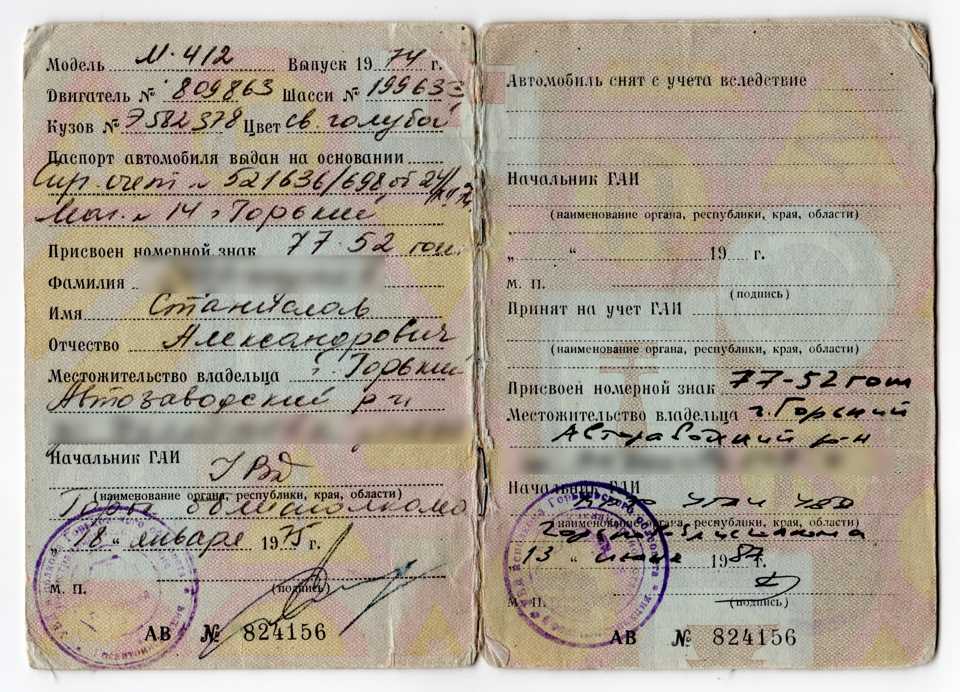 Модель М-412 Выпуск 1974 г.
Двигатель № 809863 Шасси № 199633
Кузов № Э582378 Цвет св. голубой
Паспорт автомобиля выдан на основании
счет № 521636/698 от 24/
Маг. № 14 г Горький
Присвоен номерной знак 77-52
Фамилия
Имя Станислав
Отчество Александрович
Местожительство владельца г. Горький
Автозаводский р-н
Начальник ГАИ УВД
(наименование органа, республики, края, области)
Горьк. облисполкома
„18“ января 1975 г.
М. П. (подпись)
АВ № 824156
Автомобиль снят с учета вследствие
Начальник ГАИ
(наименование органа, республики, края, области)
„ “ 19 г.
М. П. (подпись)
Принят на учет ГАИ
(наименование органа, республики, края, области)
Присвоен номерной знак 77-52
Местожительство владельца г. Горький
Автозаводский р-н
Начальник ГАИ
(наименование органа, республики, края, области)
13 “ 198 г.
М. П. (подпись)
АВ № 824156